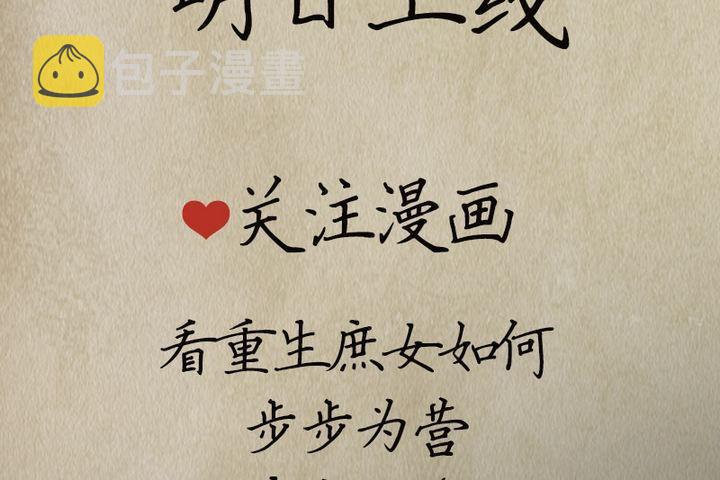 明日上线
包子漫畫
关注漫画
看重生庶女如何
步步为营